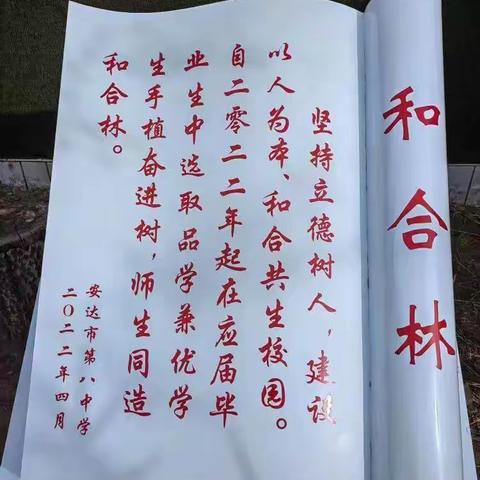 坚持立德树人，建设
以人为本、和合共生校园。
自二零二二年起在应届毕
业生中选取品学兼优学
生手植奋进树，师生同造
和合林。
安达市第八中学
二〇二二年四月
和合林